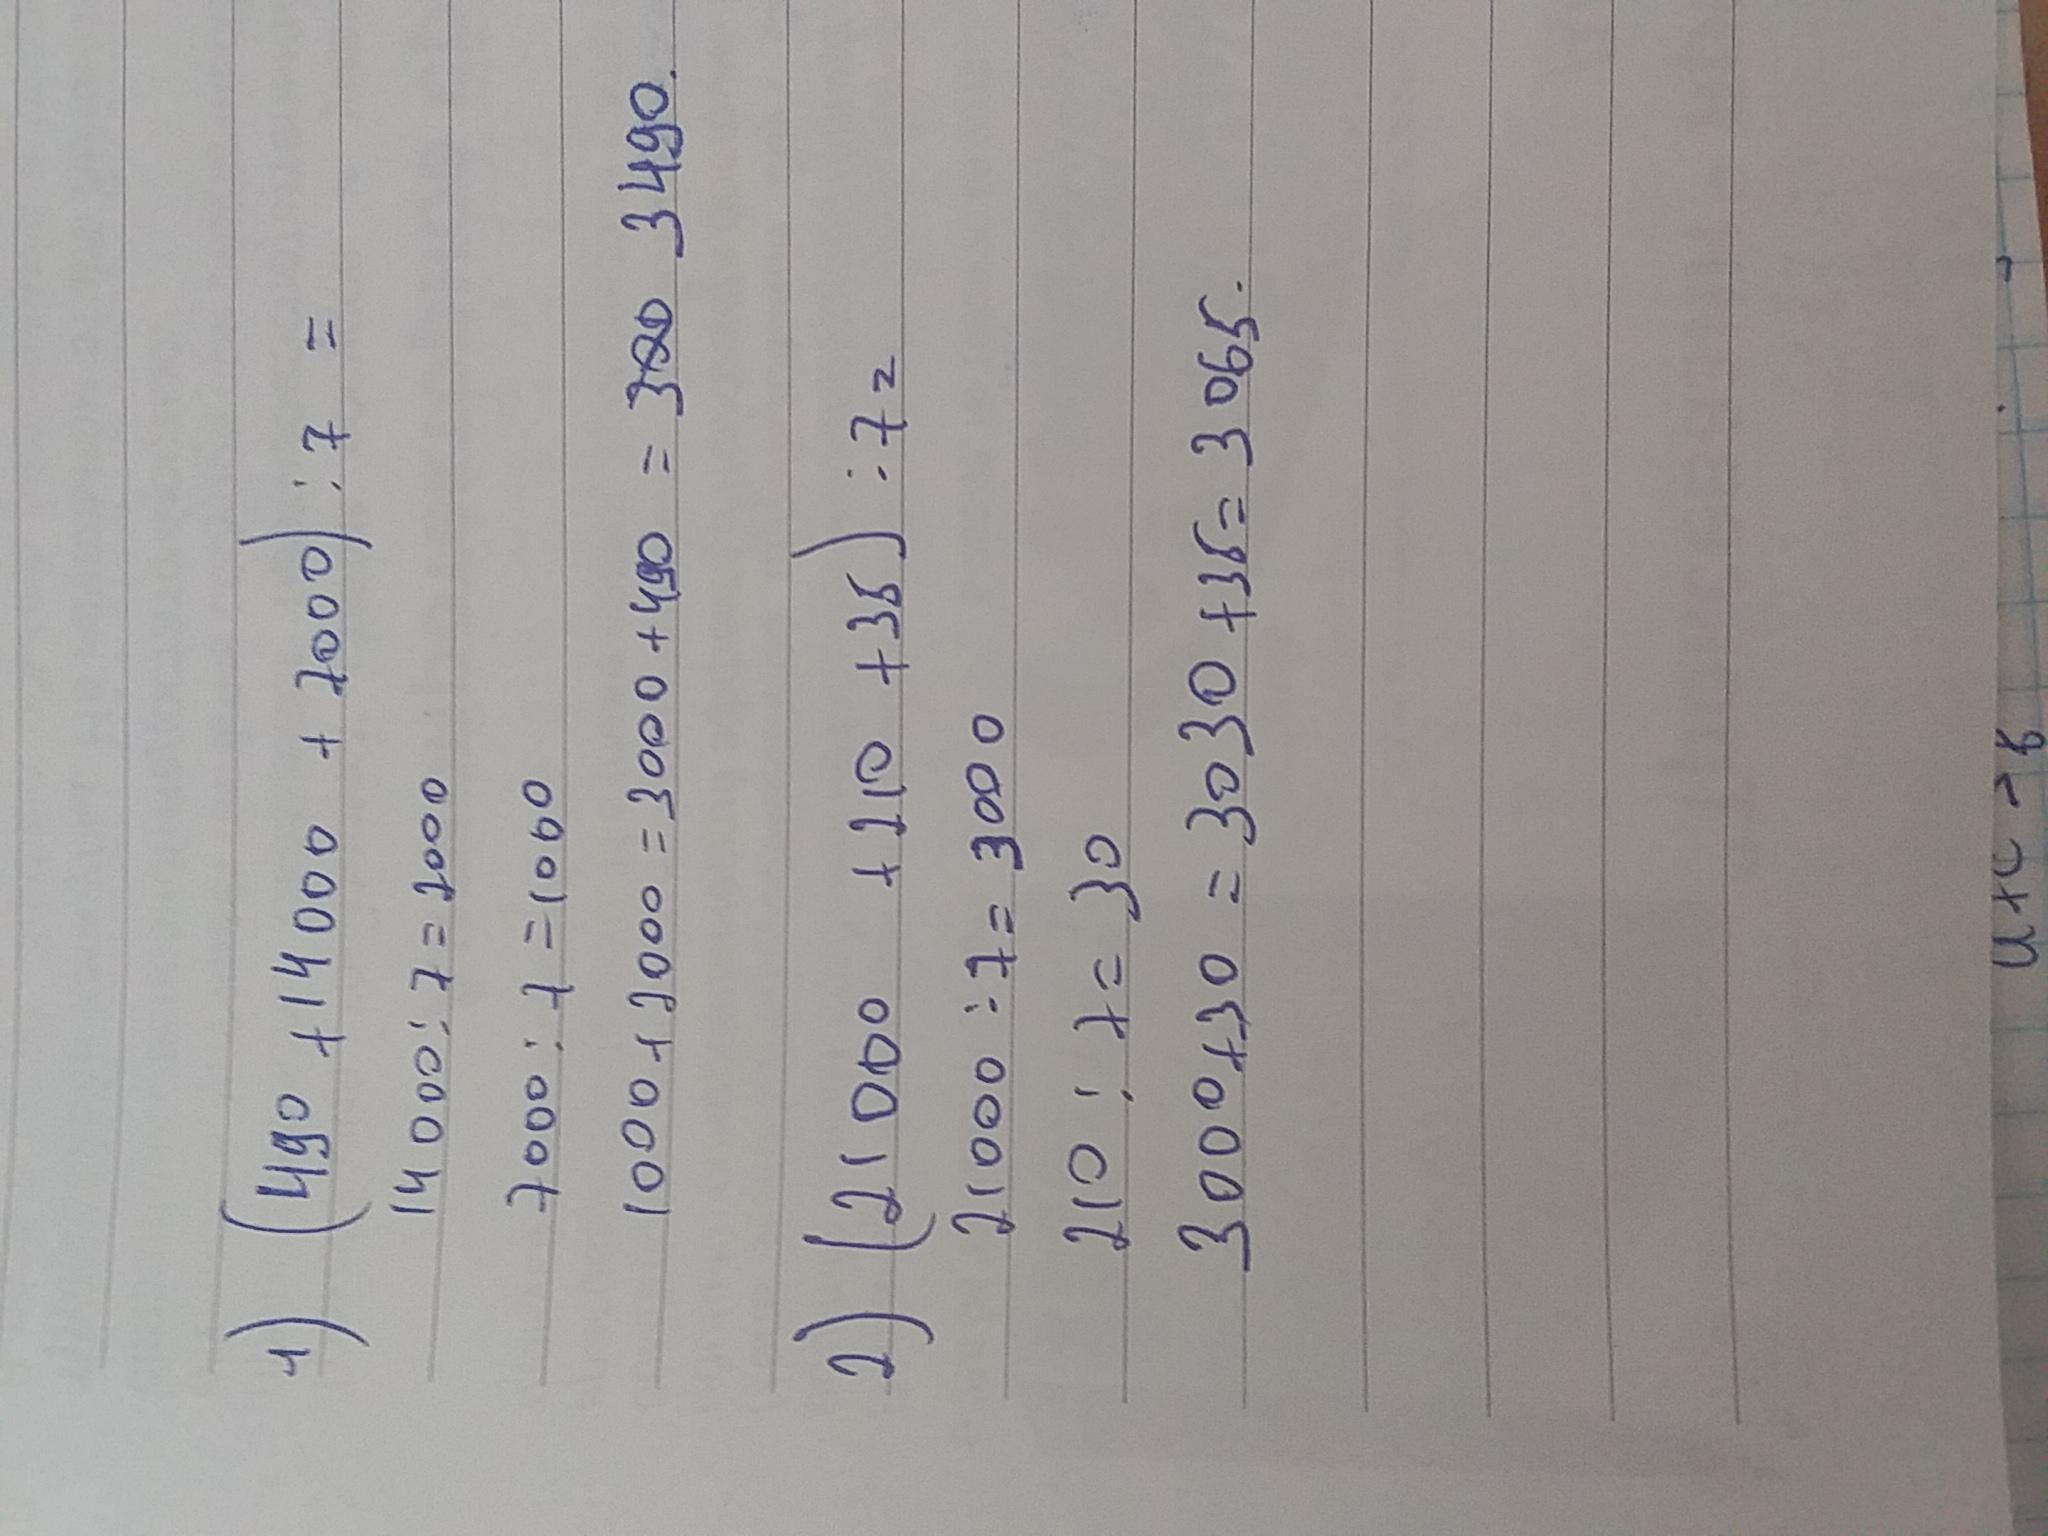 1) (490 + 14000 + 7000) : 7 =
14000 : 7 = 2000
7000 : 7 = 1000
1000 + 2000 = 3000 + 490 = 3490.
2) (21000 + 210 + 35) : 7 =
21000 : 7 = 3000
210 : 7 = 30
3000 + 30 = 3030 + 35 = 3065.